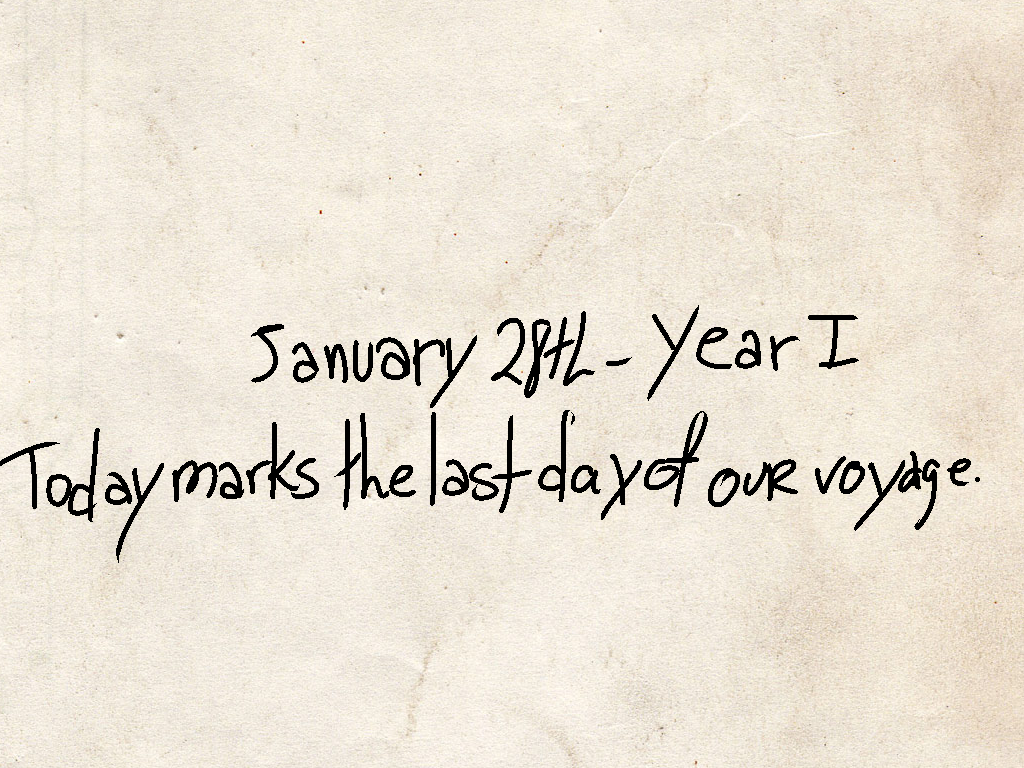 January 28th - Year I
Today marks the last day of our voyage.